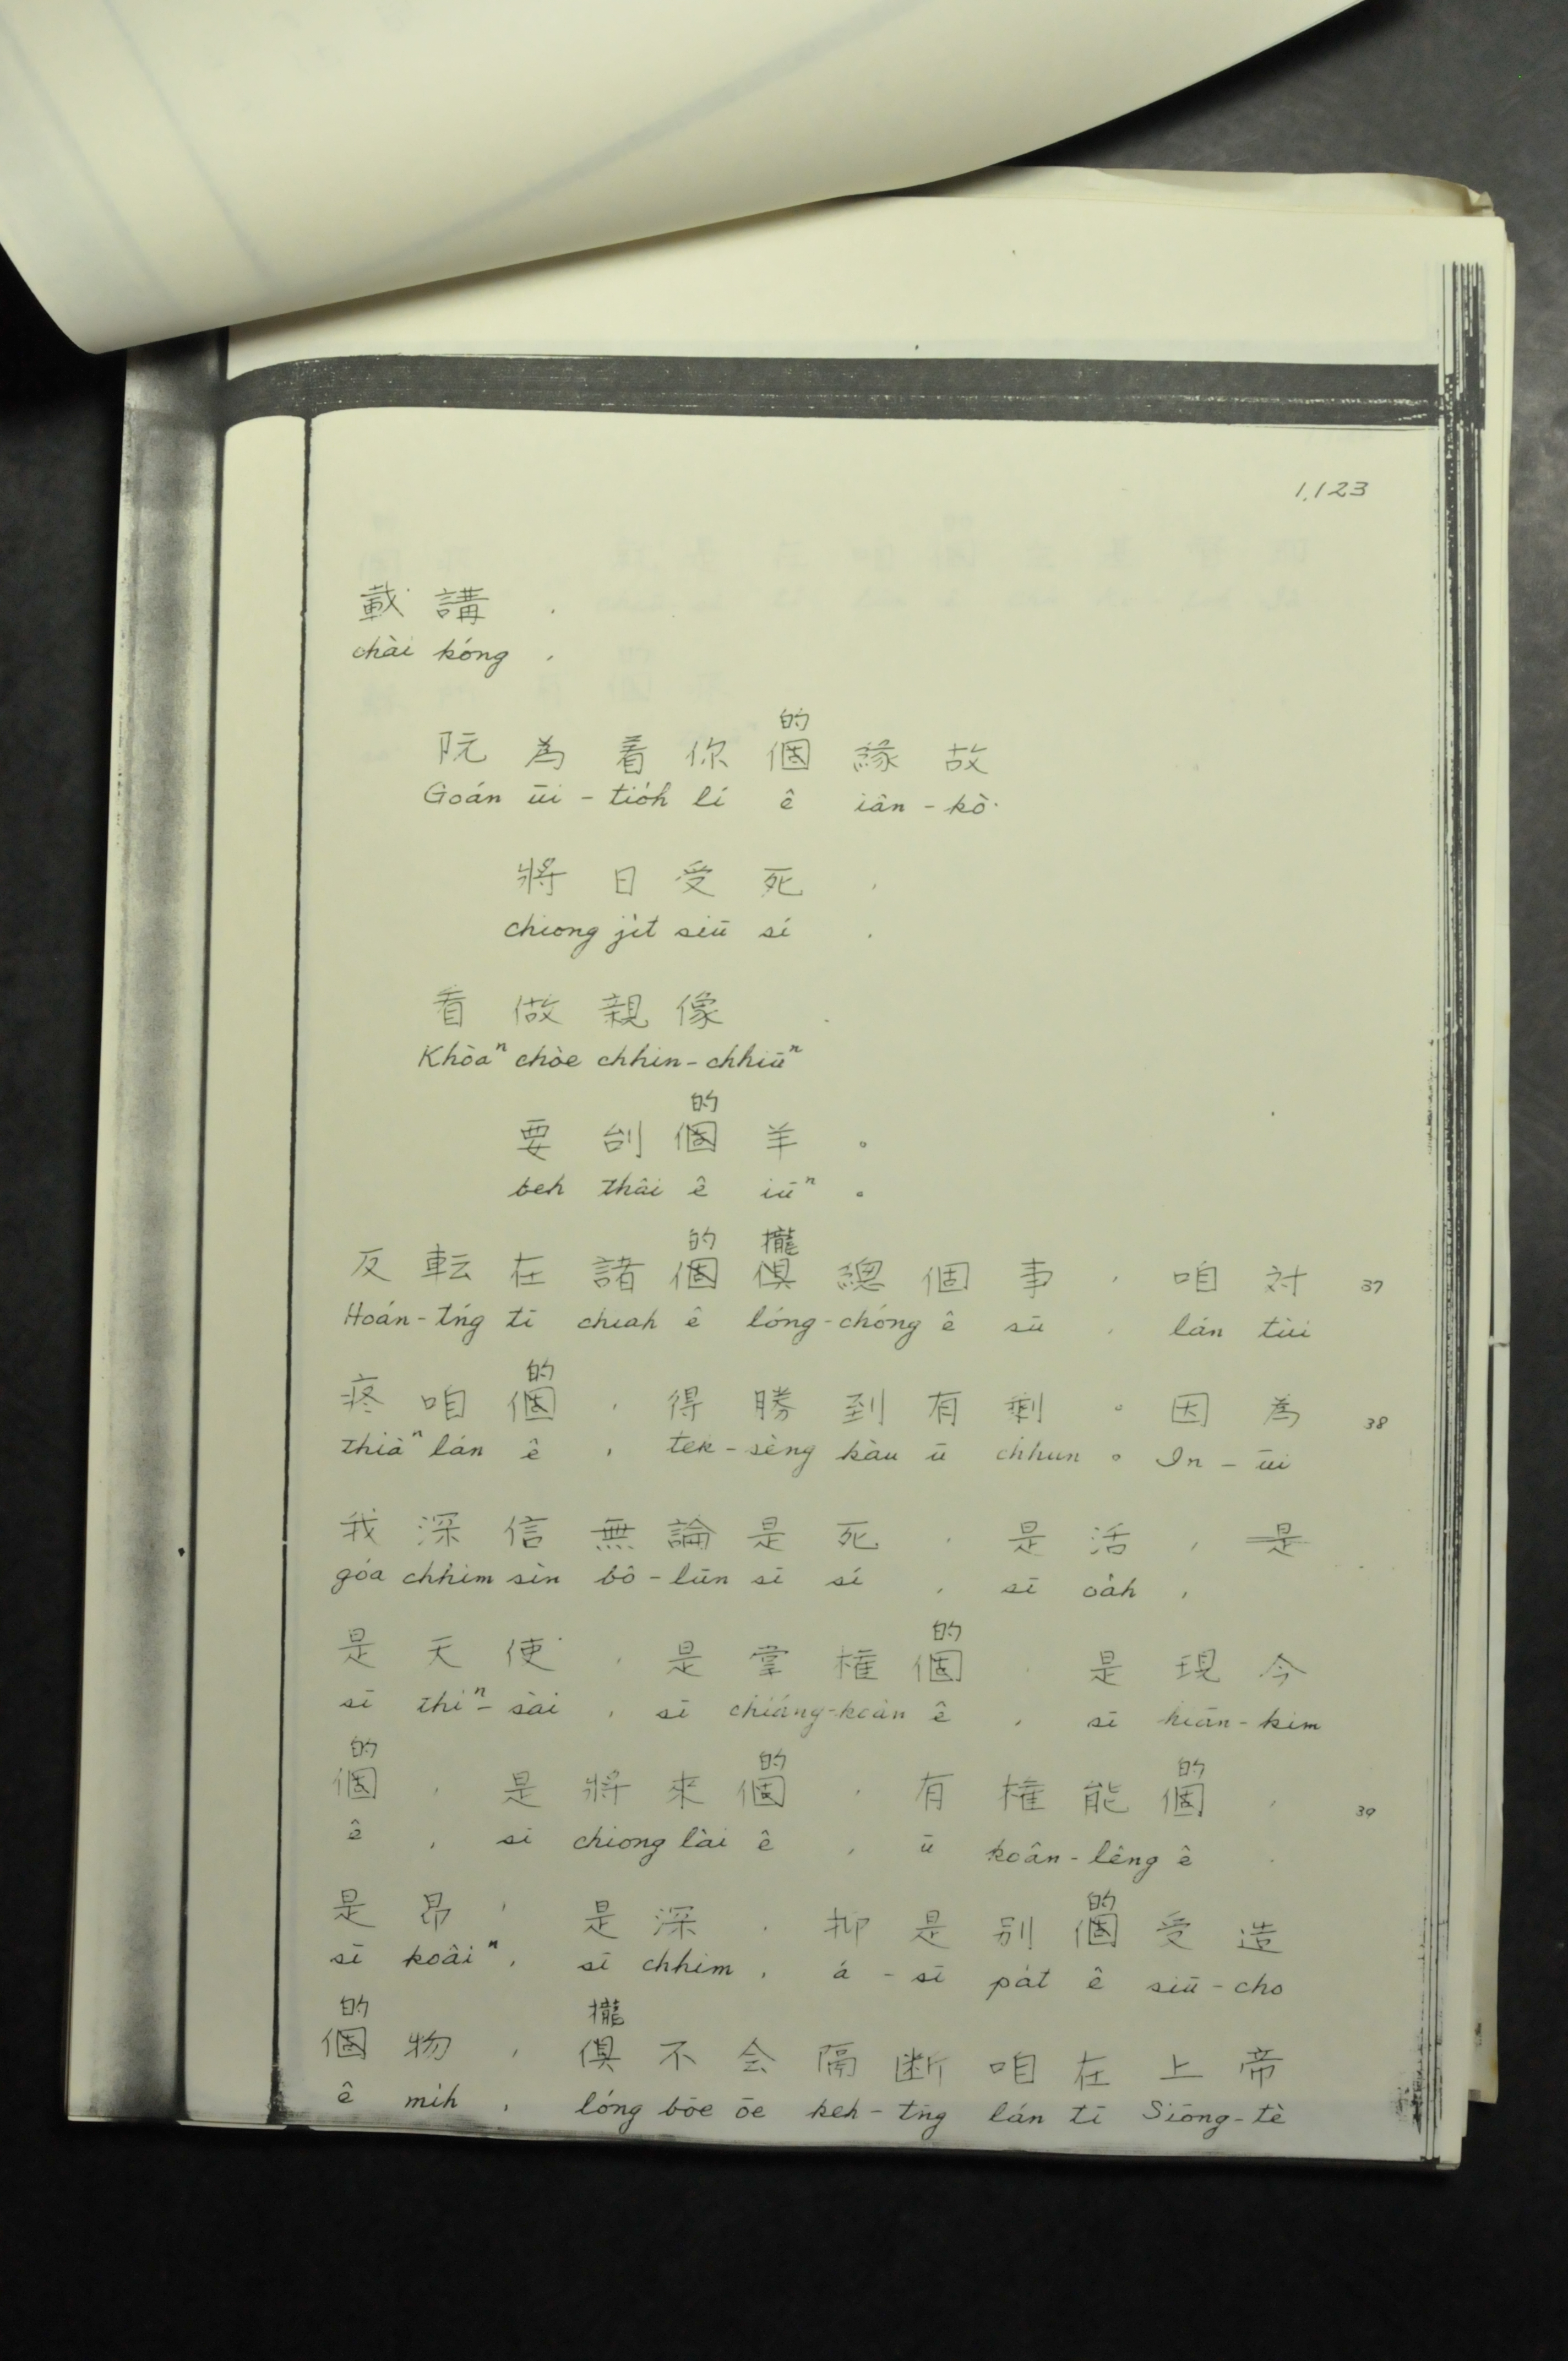 1,123
載講，
chài kóng ，
的
阮為着你個緣故
Goán ūi - tio̍h lí ê iân - kò͘
將日受死，
chiong ji̍t siū sí ，
看做親像
Khòaⁿ chòe chhin - chhiūⁿ
的
要刣個羊。
beh thâi ê iûⁿ 。
的 攏
反転在諸個俱總個事，咱対 37
Hoán - tńg tī chiah ê lóng - chóng ê sū ， lán tùi
的
疼咱個，得勝到有剩。因為 38
thiàⁿ lán ê ， tek - sèng kàu ū chhun 。 In - ūi
我深信無論是死，是活，是
góa chhim sìn bô - lūn sī sí ， sī oa̍h ，
的
是天使，是掌権個，是現今
sī thiⁿ - sài ， sī chiáng - koân ê ， sī hiān - kim
的 的 的
個，是將來個，有権能個， 39
ê ， sī chiong lâi ê ， ū koân - lêng ê ，
的
是昂，是深，抑是別個受造
sī koâiⁿ ， sī chhim ， á - sī pa̍t ê siū - cho
的 攏
個物，俱不会隔断咱在上帝
ê mi̍h ， lóng bōe ōe keh - tn̄g lán tī Siōng - tè